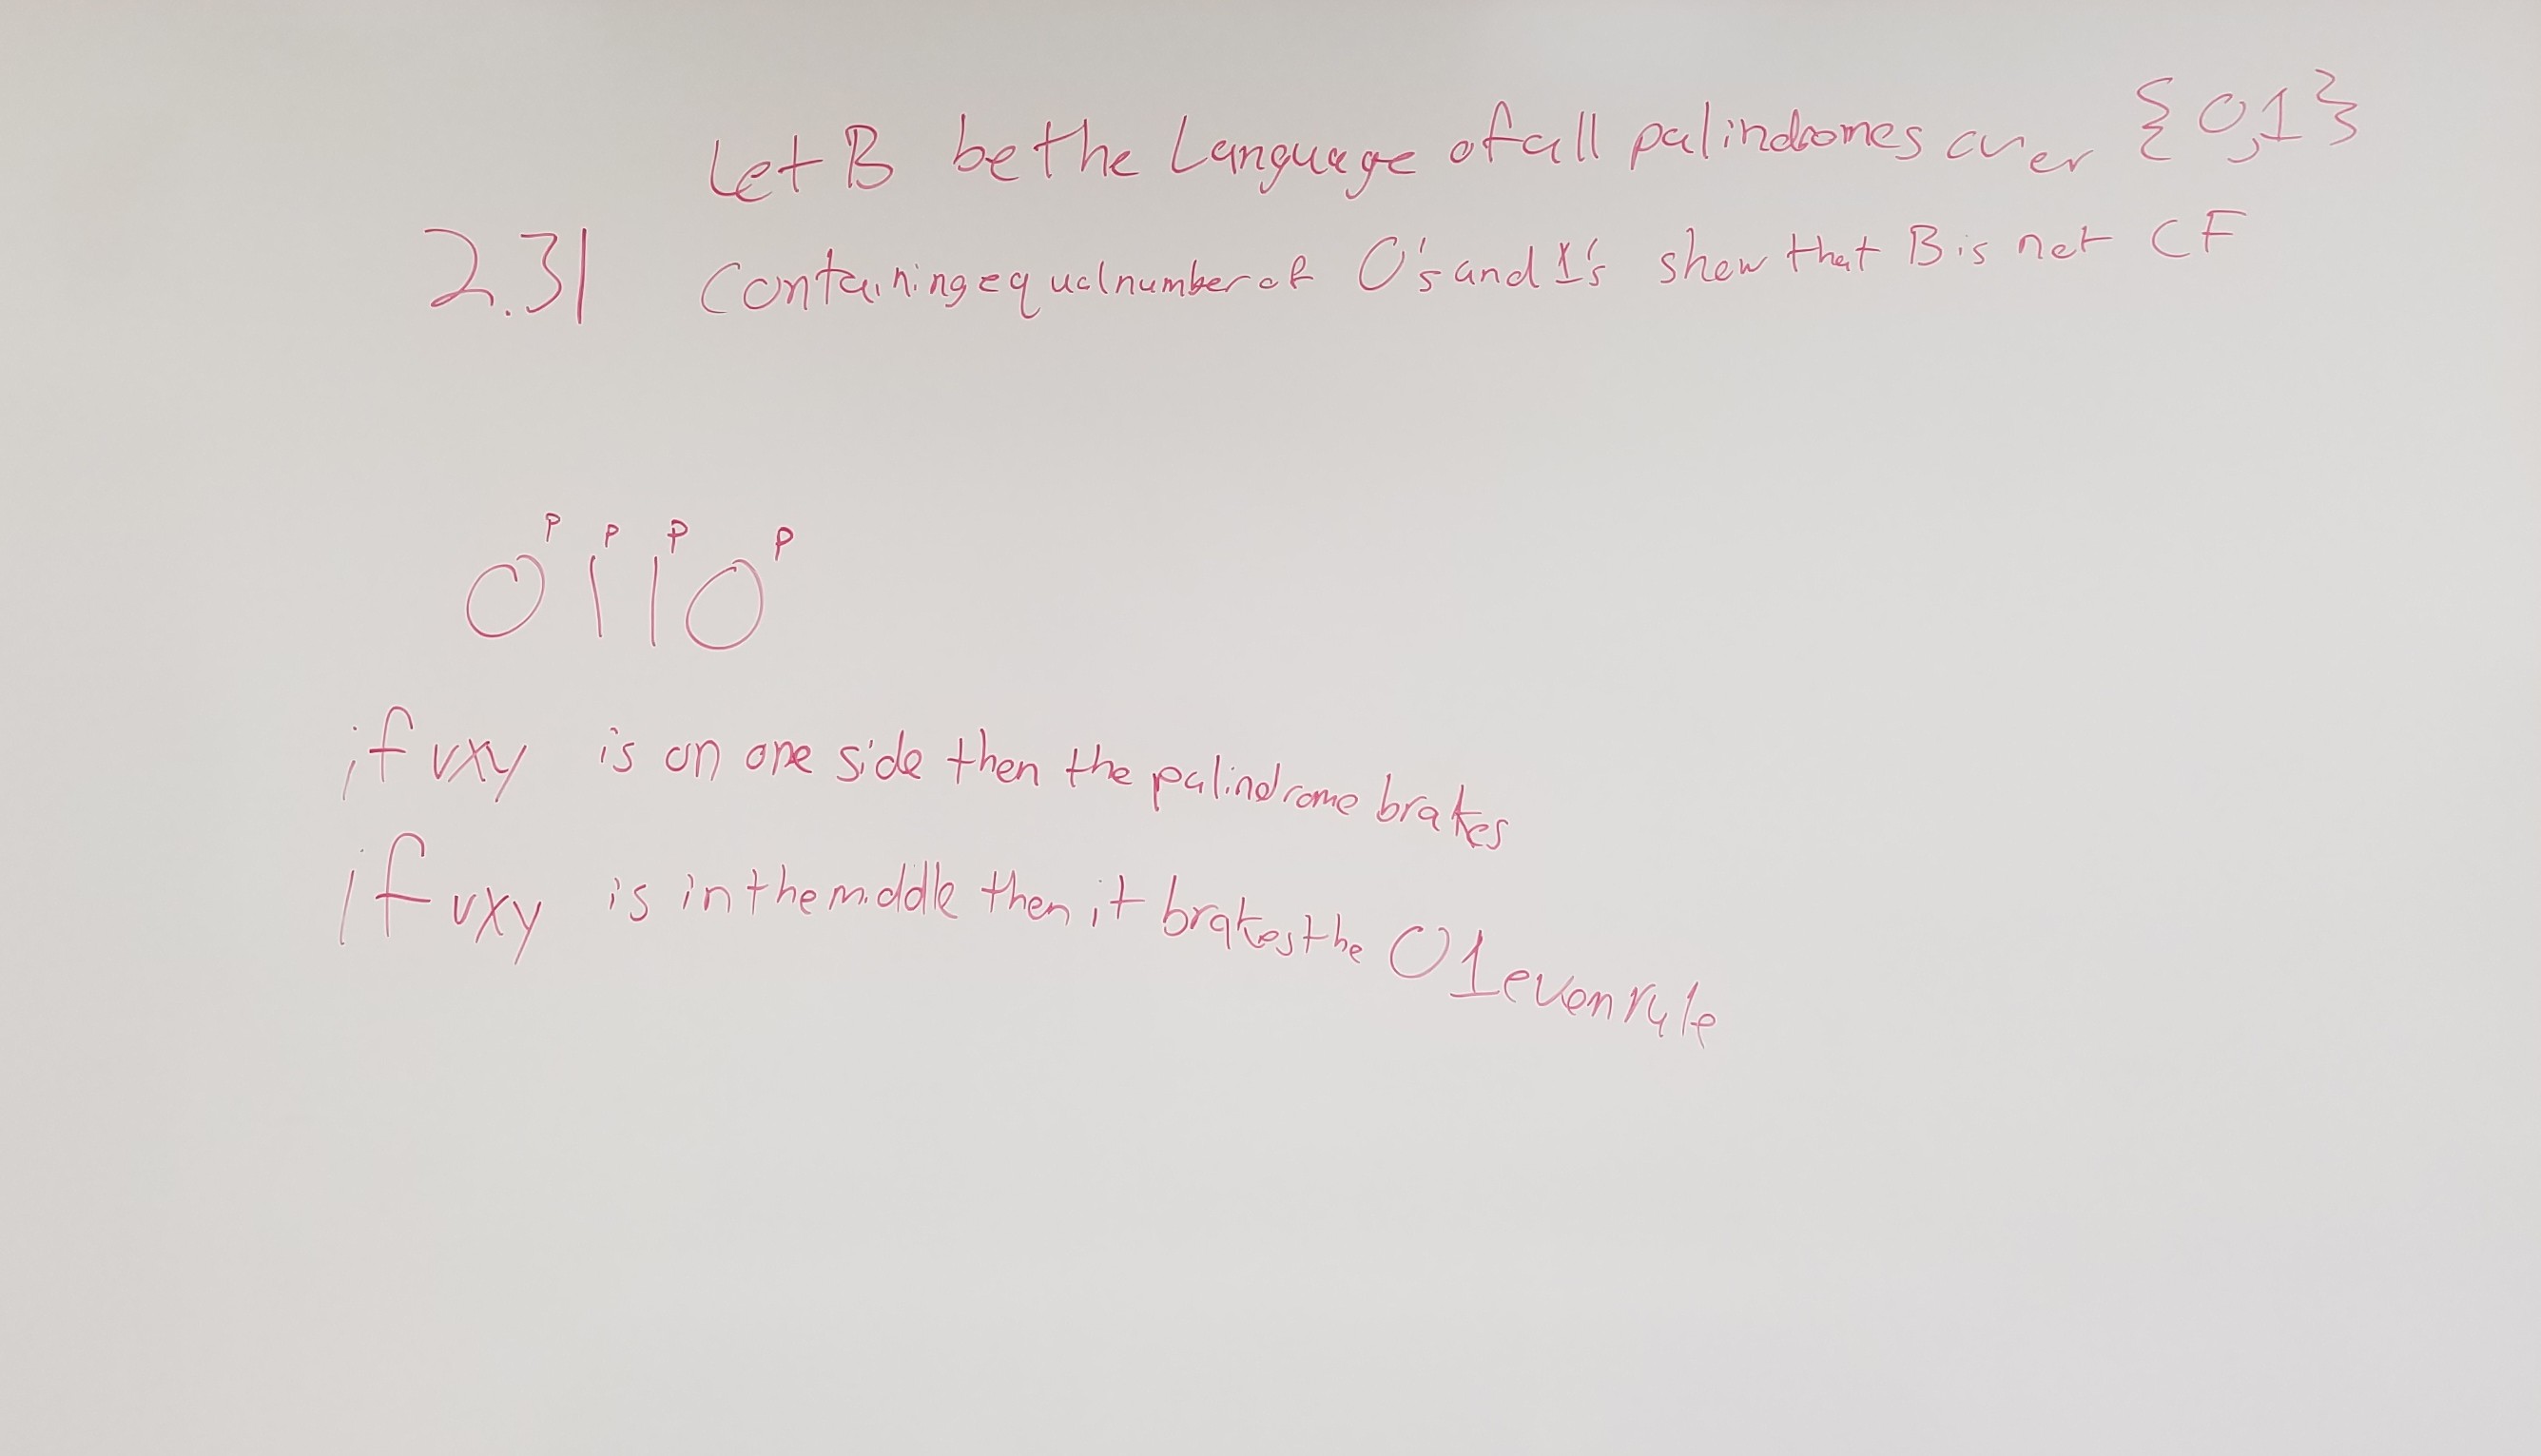 Let B be the Language of all palindromes over {0,1}
2.31 Containing equal number of 0's and 1's show that B is not CF
0ᴾ1ᴾ1ᴾ0ᴾ
if vxy is on one side then the palindrome brakes
if vxy is in the middle then it brakes the 01 even rule